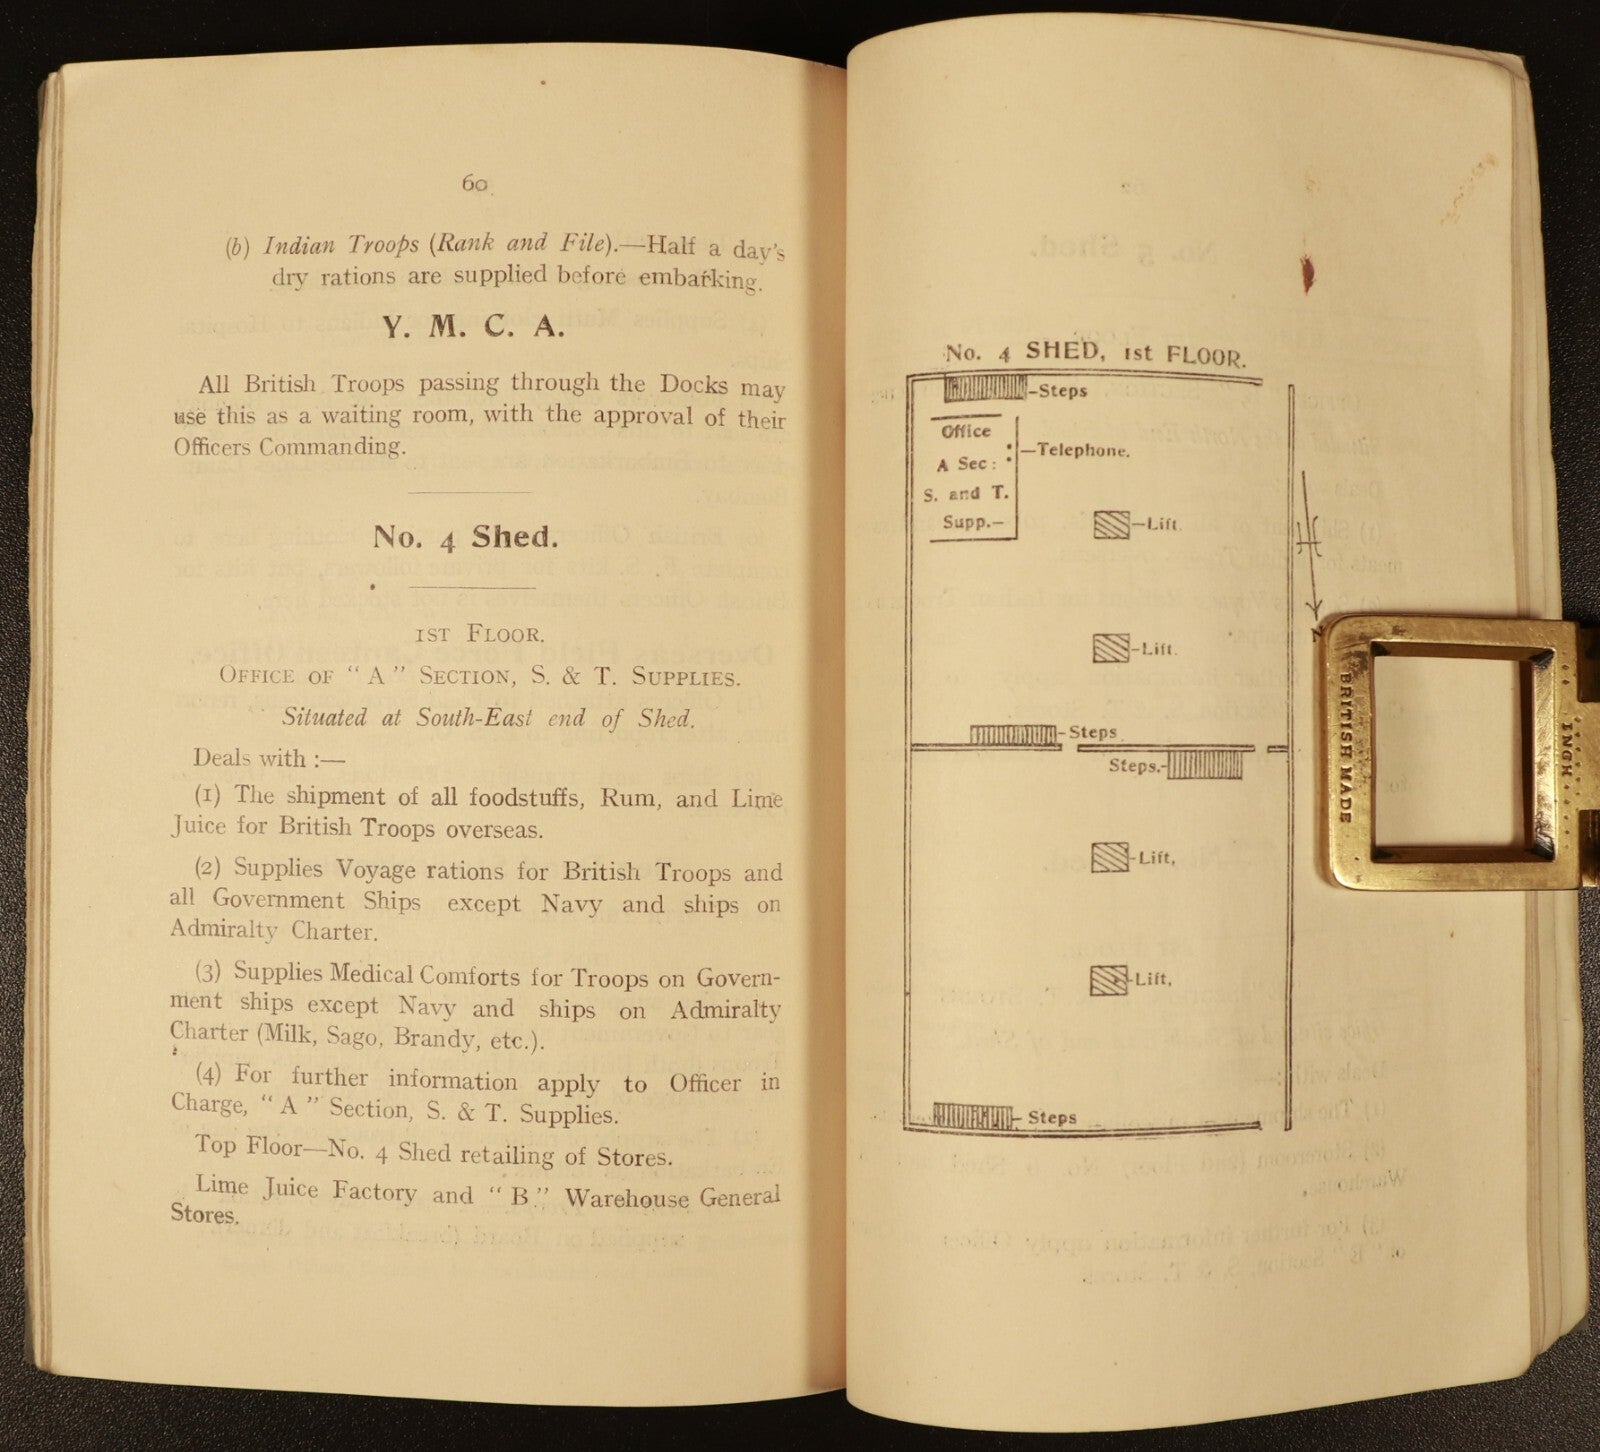 60
(b) Indian Troops (Rank and File).—Half a day's
dry rations are supplied before embarking.
Y. M. C. A.
All British Troops passing through the Docks may
use this as a waiting room, with the approval of their
Officers Commanding.
No. 4 Shed.
1ST FLOOR.
OFFICE OF "A" SECTION, S. & T. SUPPLIES.
Situated at South-East end of Shed.
Deals with :—
(1) The shipment of all foodstuffs, Rum, and Lime
Juice for British Troops overseas.
(2) Supplies Voyage rations for British Troops and
all Government Ships except Navy and ships on
Admiralty Charter.
(3) Supplies Medical Comforts for Troops on Govern-
ment ships except Navy and ships on Admiralty
Charter (Milk, Sago, Brandy, etc.).
(4) For further information apply to Officer in
Charge, "A" Section, S. & T. Supplies.
Top Floor—No. 4 Shed retailing of Stores.
Lime Juice Factory and "B" Warehouse General
Stores.
No. 4 SHED, 1st FLOOR.
Steps
Office
A Sec:
S. and T.
Supp.—
Telephone.
Lift
Lift.
Steps
Steps.
Lift,
Lift,
Steps
N
BRITISH MADE